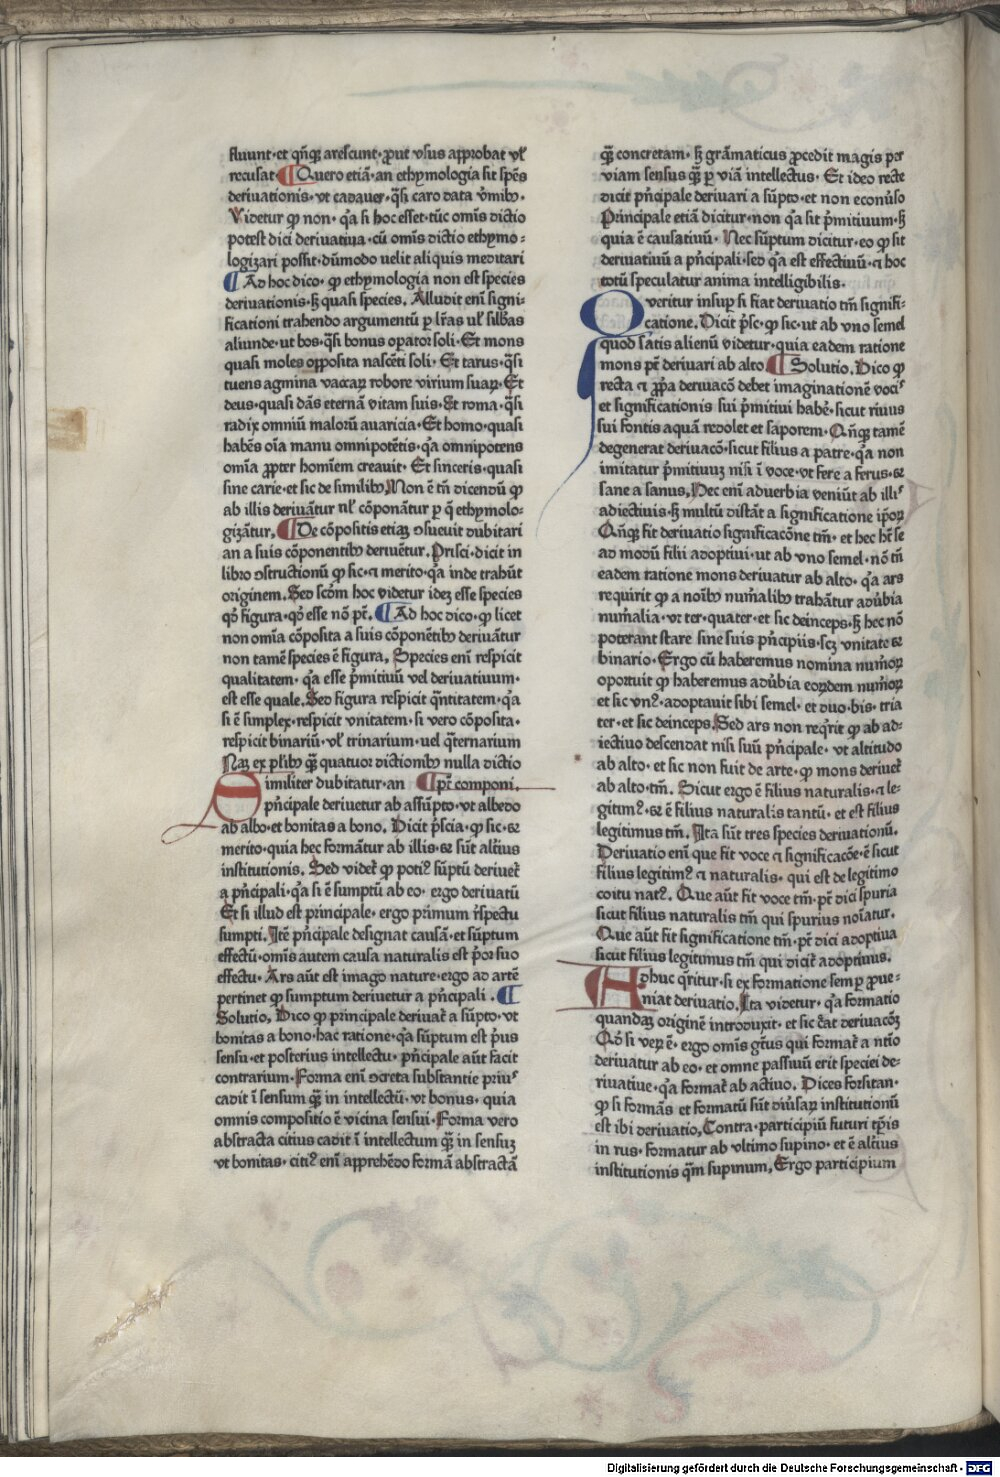 fluunt·et qñqꝫ arescunt·ꝓut vsus approbat vl̓
recusat·¶Quero etiã·an ethymologia sit sp̄es
deriuationis·vt cadauer·q̃si caro data v̓mibꝰ·
Videtur ꝙ non·q̃a si hoc esset·tũc om̄is dictio
potest dici deriuatiua·cũ om̄is dictio ethymo-
logizari possit·dũmodo velit aliquis meditari
¶Ad hoc dico·ꝙ ethymologia non est species
deriuationis·ꝫ quasi species. Alludit enĩ signi-
ficationi trahendo argumentũ ꝑ lr̃as ul̓ sill̓bas
aliunde·ut bos·q̃si bonus oꝑator soli·Et mons
quasi moles opposita nascẽti soli· Et taurus·q̃si
tuens agmina vaccaꝝ robore virium suaꝝ·Et
deus·quasi dãs eternã vitam suis·Et roma·q̃si
radix omniũ maloꝝ auaricia·Et homo·quasi
habẽs oĩa manu omnipotẽtis·q̃a omnipotens
omĩa ꝓpter homĩem creauit· Et sinceris·quasi
sine carie·et sic de similibꝰ,Non ẽ tñ dicendũ ꝙ
ab illis deriuãtur ul̓ cõponãtur ꝑ q̃ ethymolo-
gizãtur,¶De cõpositis etiaꝫ ↄsueuit dubitari
an a suis cõponentibꝰ deriuẽtur. Prisci·dicit in
libro ↄstructionũ ꝙ sic·⁊ merito·q̃a inde trahũt
originem. Sed scd̃m hoc videtur ideꝫ esse species
qd̓ figura·qd̓ esse nõ pt̃.¶Ad hoc dico·ꝙ licet
non omĩa cõposita a suis cõponẽtibꝰ deriuãtur
non tamẽ species ẽ figura, Species enĩ respicit
qualitatem·q̃a esse p̓mitiuũ vel deriuatiuum·
est esse quale.Sed figura respicit q̃ntitatem·q̃a
si ẽ simplex·respicit vnitatem·si vero cõposita·
respicit binariũ·vl̓ trinarium·uel q̃ternarium
Naꝫ ex pl̓ibꝰ q̃ꝫ quatuor dictionibꝰ nulla dictio
Similiter dubitatur·an ¶pt̃ componi.
pñcipale deriuetur ab assũpto·vt albedo
ab albo·et bonitas a bono. Dicit p̓scia·ꝙ sic·⁊
merito·quia hec formãtur ab illis·⁊ sũt alt̓ius
institutionis. Sed videt̃ ꝙ potiꝰ sũptũ deriuet̃
a pñcipali·q̃a si ẽ sumptũ ab eo· ergo deriuatũ
Et si illud est principale·ergo primum r̃spectu
sumpti.Itẽ pñcipale designat causã·et sũptum
effectũ·omĩs autem causa naturalis est p̓or suo
effectu·Ars aũt est imago nature·ergo ad artẽ
pertinet ꝙ sumptum deriuetur a pñcipali .¶
Solutio, Dico ꝙ principale deriuat̃ a sũpto·vt
bonitas a bono·hac ratione·q̃a sũptum est p̓us
sensu·et posterius intellectu·pñcipale aũt facit
contrarium·Forma enĩ ↄcreta substantie priuꝰ
cadit ĩ sensum q̃ꝫ in intellectũ·vt bonus·quia
omnis compositio ẽ vicina sensui·Forma vero
abstracta citius cadit ĩ intellectum q̃ꝫ in sensuꝫ
vt bonitas·citiꝰ enĩ apprehẽdo formã abstractã
q̃ꝫ concretam·ꝫ grãmaticus ꝓcedit magis per
viam sensus q̃ꝫ ꝑ viã intellectus· Et ideo recte
dicit pñcipale deriuari a sũpto·et non econũso
Principale etiã dicitur·non q̃a sit p̓mitiuum·ꝫ
quia ẽ causatiuũ· Nec sũptum dicitur·eo ꝙ sit
deriuatiuũ a pñcipali·sed q̃a est effectiuũ·⁊ hoc
totũ speculatur anima intelligibilis·
Queritur insuꝑ si fiat deriuatio tm̃ signifi-
catione. Dicit p̓sc·ꝙ sic·ut ab vno semel
quod satis alienũ videtur·quia eadem ratione
mons pt̃ deriuari ab alto ¶Solutio. Dico ꝙ
recta ⁊ ꝓp̓a deriuacõ debet imaginationẽ vociꝰ
et significationis sui p̓mitiui habẽ·sicut riuus
sui fontis aquã redolet et saporem·Qñqꝫ tamẽ
degenerat deriuacõ·sicut filius a patre·q̃a non
imitatur p̓mitiuuꝫ nisi ĩ voce·vt fere a ferus·⁊
sane a sanus,Nec enĩ aduerbia veniũt ab illiꝰ
adiectiuis·ꝫ multũ distãt a significatione ip̃oꝝ
Qñqꝫ fit deriuatio significacõne tm̃· et hec hr̃ se
ad modũ filii adoptiui·ut ab vno semel·nõ tñ
eadem ratione mons deriuatur ab alto· q̃a ars
requirit ꝙ a noĩbꝰ num̃alibꝰ trahãtur adũbia
num̃alia·vt ter·quater·et sic deinceps·ꝫ hec nõ
poterant stare sine suis pñcipiis·scꝫ vnitate ⁊
binario·Ergo cũ haberemus nomina num̃oꝝ
oportuit ꝙ haberemus adũbia eoꝝdem num̃oꝝ
et sic vnꝰ·adoptauit sibi semel·et duo·bis·tria
ter·et sic deinceps.Sed ars non req̃rit ꝙ ab ad-
iectiuo descendat nisi suũ pñcipale·vt altitudo
ab alto·et sic non fuit de arte·ꝙ mons deriuet̃
ab alto·tm̃. Sicut ergo ẽ filius naturalis·⁊ le-
gitimꝰ·⁊ ẽ filius naturalis tantũ·et est filius
legitimus tm̃. Ita sũt tres species deriuationũ.
Deriuatio enĩ que fit voce ⁊ significacõe·ẽ sicut
filius legitimꝰ ⁊ naturalis·qui est de legitimo
coitu natꝰ. Que aũt fit voce tm̃·pt̃ dici spuria
sicut filius naturalis tm̃ qui spurius noĩatur.
Que aũt fit significatione tm̃·pt̃ dici adoptiua
sicut filius legitimus tm̃ qui dicit̃ adoptiuus.
Adhuc q̃ritur·si ex formatione semꝑ ꝓue-
niat deriuatio.Ita videtur·q̃a formatio
quandaꝫ originẽ introduxit·et sic c̃at deriuacõꝫ
Qd̓ si veꝝ ẽ·ergo omĩs gt̃us qui format̃ a nt̃io
deriuatur ab eo·et omne passiuũ erit speciei de-
riuatiue·q̃a format̃ ab actiuo. Dices forsitan·
ꝙ si formãs et formatũ sũt diũsaꝝ institutionũ
est ibi deriuatio,Contra·participiũ futuri tp̃is
in rus·formatur ab vltimo supino·et ẽ alt̓ius
institutionis q̃m supinum,Ergo participium
Digitalisierung gefördert durch die Deutsche Forschungsgemeinschaft - DFG